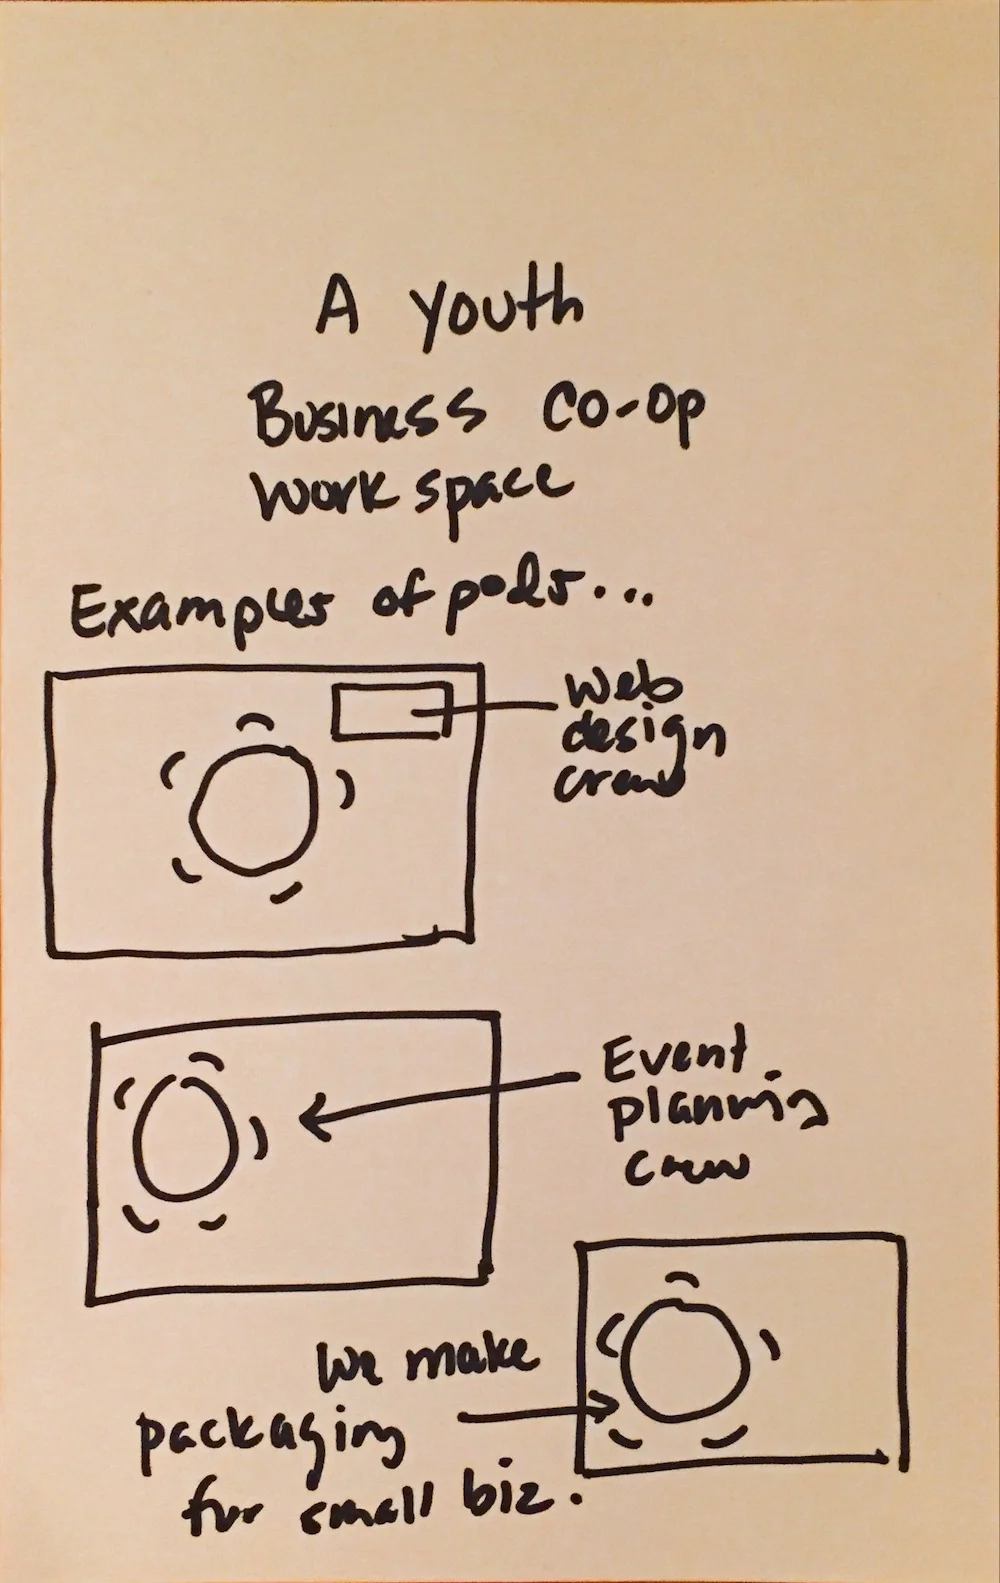 A youth
Business co-op
workspace
Examples of pods...
web
design
crew
Event
planning
crew
We make
packaging
for small biz.